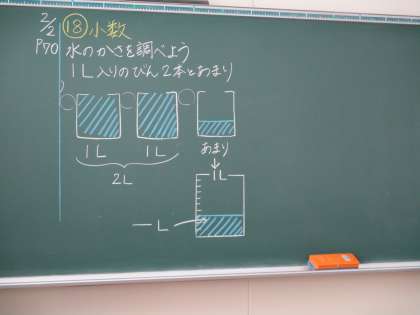 2/2 ⑱小数
P70 水のかさを調べよう
1L入りのびん2本とあまり
1L 1L あまり
2L
1L
ーL